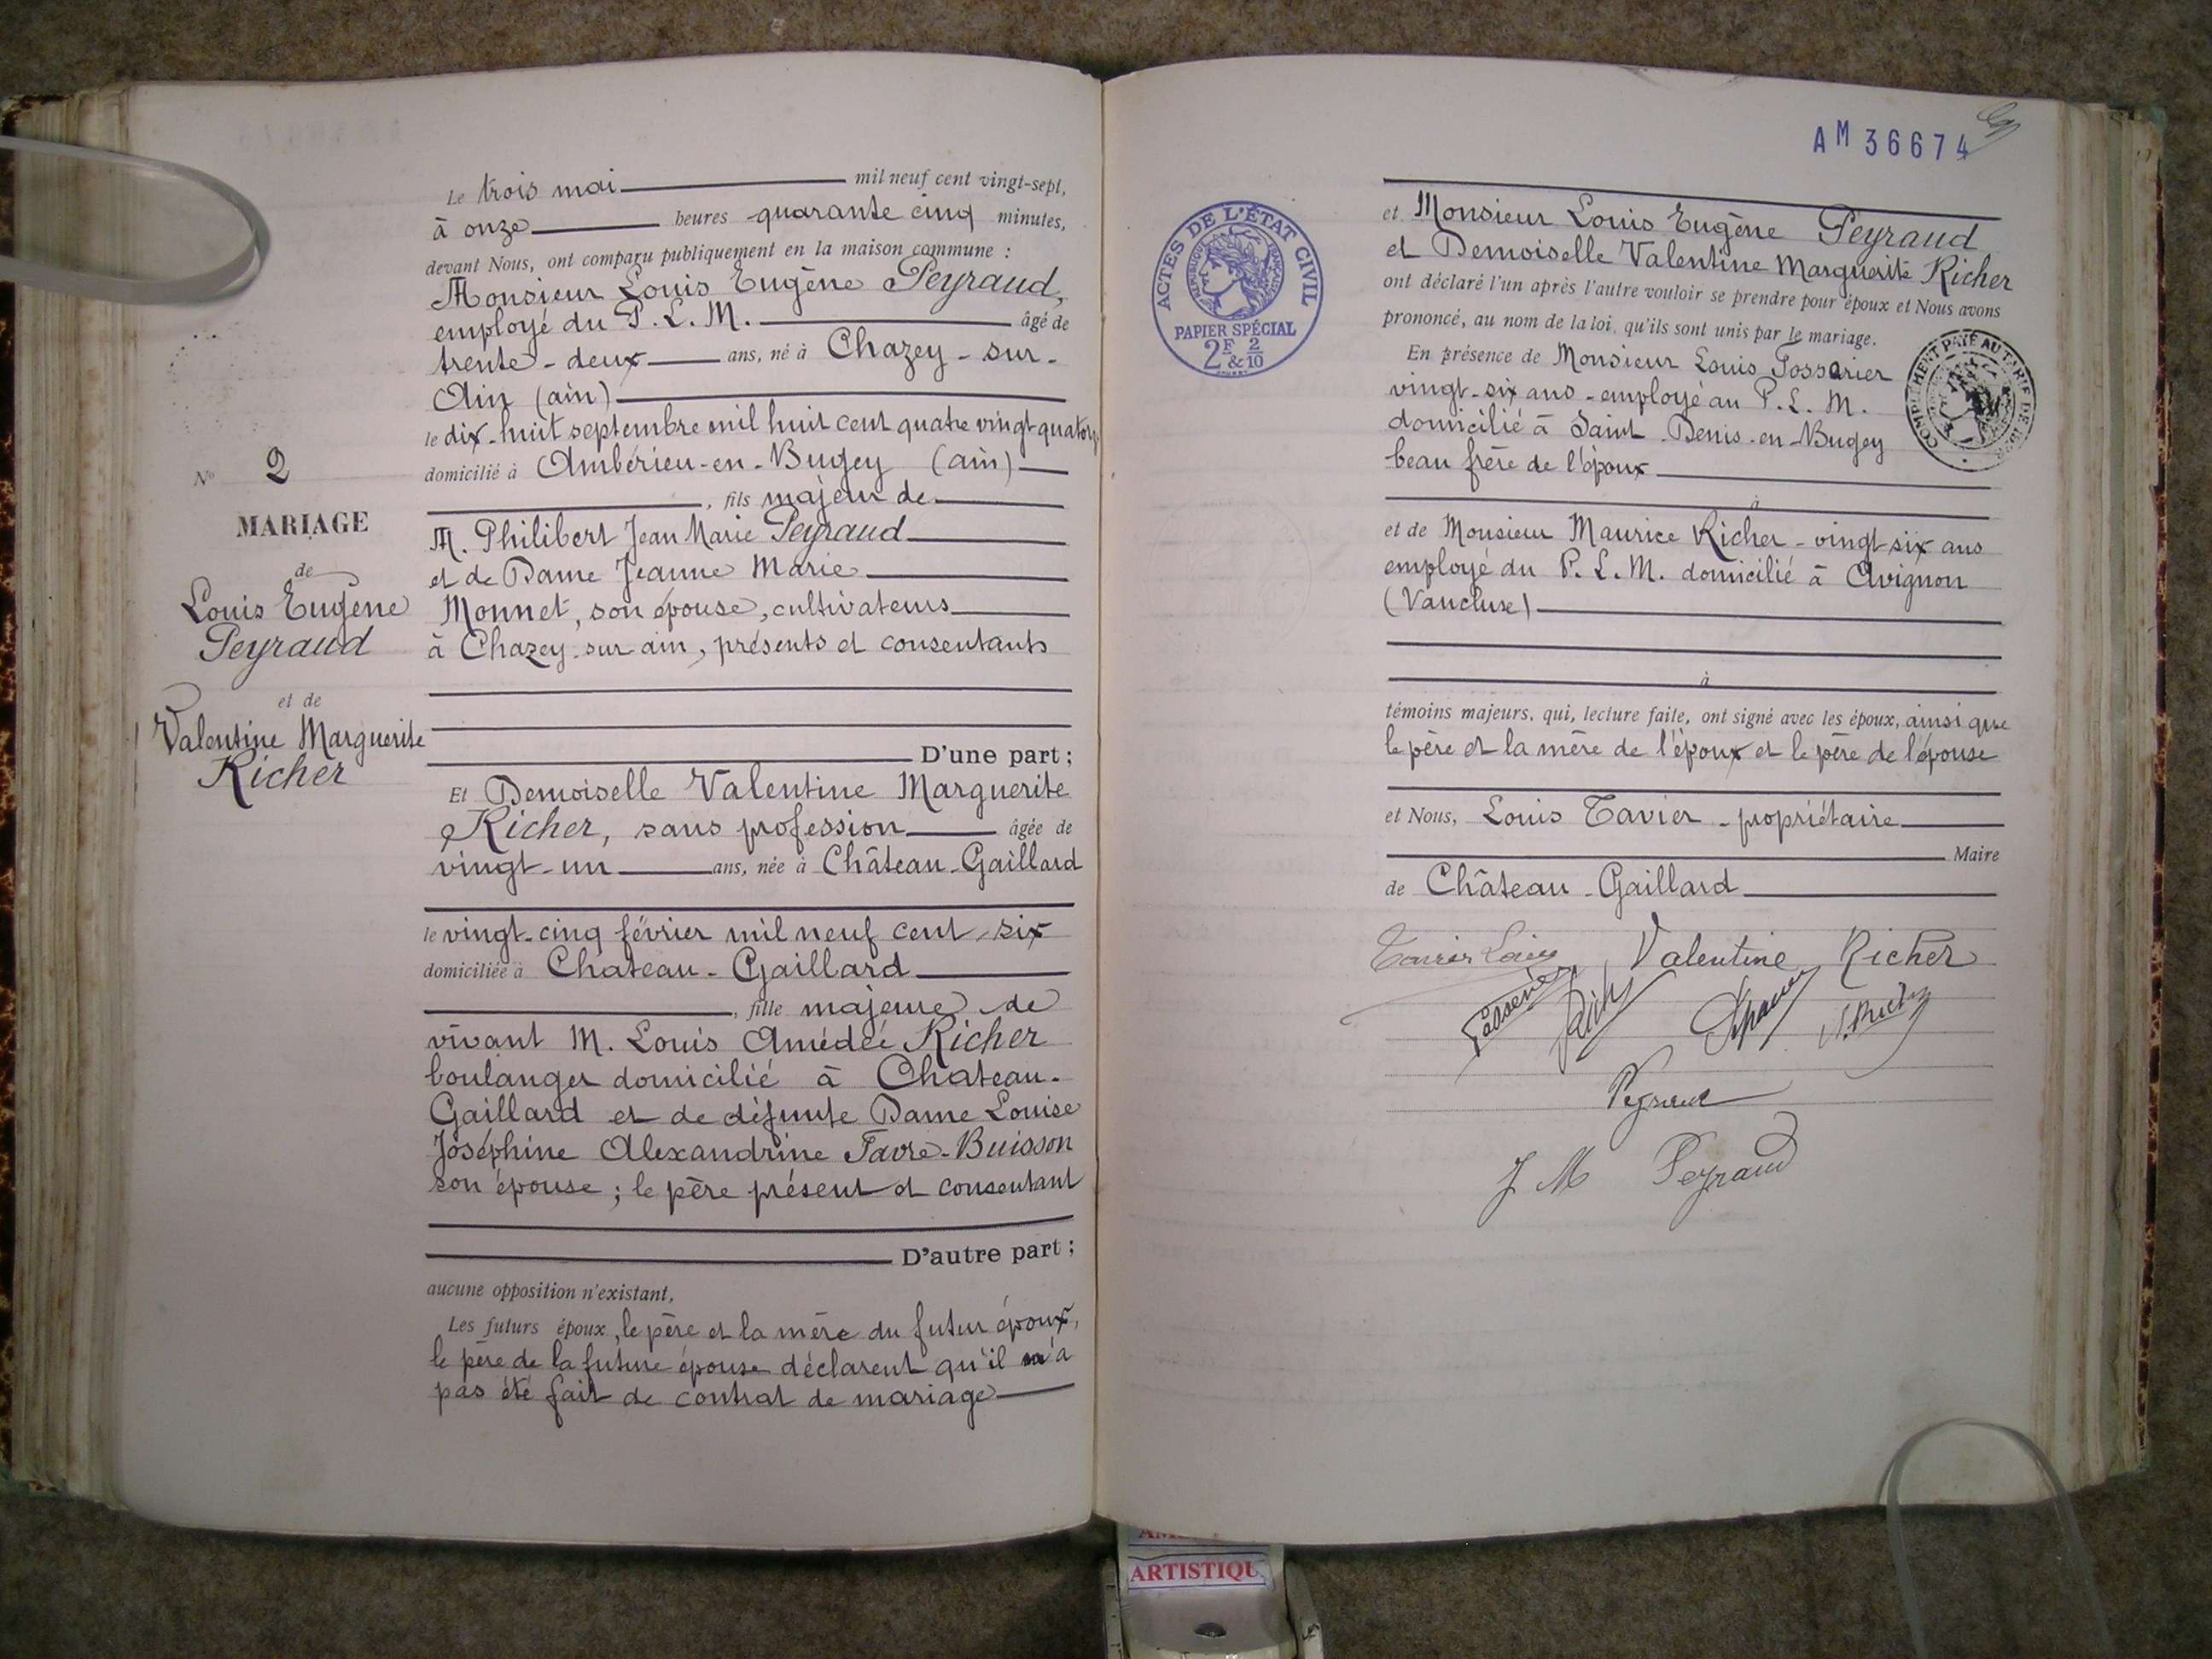 Le trois mai mil neuf cent vingt-sept,
à onze heures quarante cinq minutes,
devant Nous, ont comparu publiquement en la maison commune :
Monsieur Louis Eugène Peyraud,
employé du P. L. M. âgé de
trente-deux ans, né à Chazey-sur-
Ain (ain)
le dix-huit septembre mil huit cent quatre vingt quatorze
domicilié à Ambérieu-en-Bugey (ain)
, fils majeur de
M. Philibert Jean Marie Peyraud
et de Dame Jeanne Marie
Monnet, son épouse, cultivateurs
à Chazey-sur ain, présents et consentants
D'une part ;
No 2
MARIAGE
de
Louis Eugène
Peyraud
et de
Valentine Marguerite
Richer
Et Demoiselle Valentine Marguerite
Richer, sans profession âgée de
vingt-un ans, née à Château-Gaillard
le vingt-cinq février mil neuf cent six
domiciliée à Chateau-Gaillard
, fille majeure de
vivant M. Louis Amédée Richer
boulanger domicilié à Chateau-
Gaillard et de défunte Dame Louise
Joséphine Alexandrine Favre-Buisson
son épouse ; le père présent et consentant
D'autre part ;
aucune opposition n'existant,
Les futurs époux, le père et la mère du futur époux,
le père de la future épouse déclarent qu'il n'a
pas été fait de contrat de mariage
AM 36674
ACTES DE L'ÉTAT CIVIL
RÉPUBLIQUE FRANÇAISE
PAPIER SPÉCIAL
2F & 2/10
et Monsieur Louis Eugène Peyraud
et Demoiselle Valentine Marguerite Richer
ont déclaré l'un après l'autre vouloir se prendre pour époux et Nous avons
prononcé, au nom de la loi, qu'ils sont unis par le mariage.
COMPLEMENT PAYÉ AU TARIF DE
En présence de Monsieur Louis Possarier
vingt-six ans - employé au P. L. M.
domicilié à Saint-Denis-en-Bugey
beau frère de l'époux
à
et de Monsieur Maurice Richer - vingt six ans
employé du P. L. M. domicilié à Avignon
(Vaucluse)
à
témoins majeurs, qui, lecture faite, ont signé avec les époux, ainsi que
le père et la mère de l'époux et le père de l'épouse
et Nous, Louis Tavier - propriétaire
Maire
de Château-Gaillard
Tavier Louis Valentine Richer
J M Peyraud
ARTISTIQU